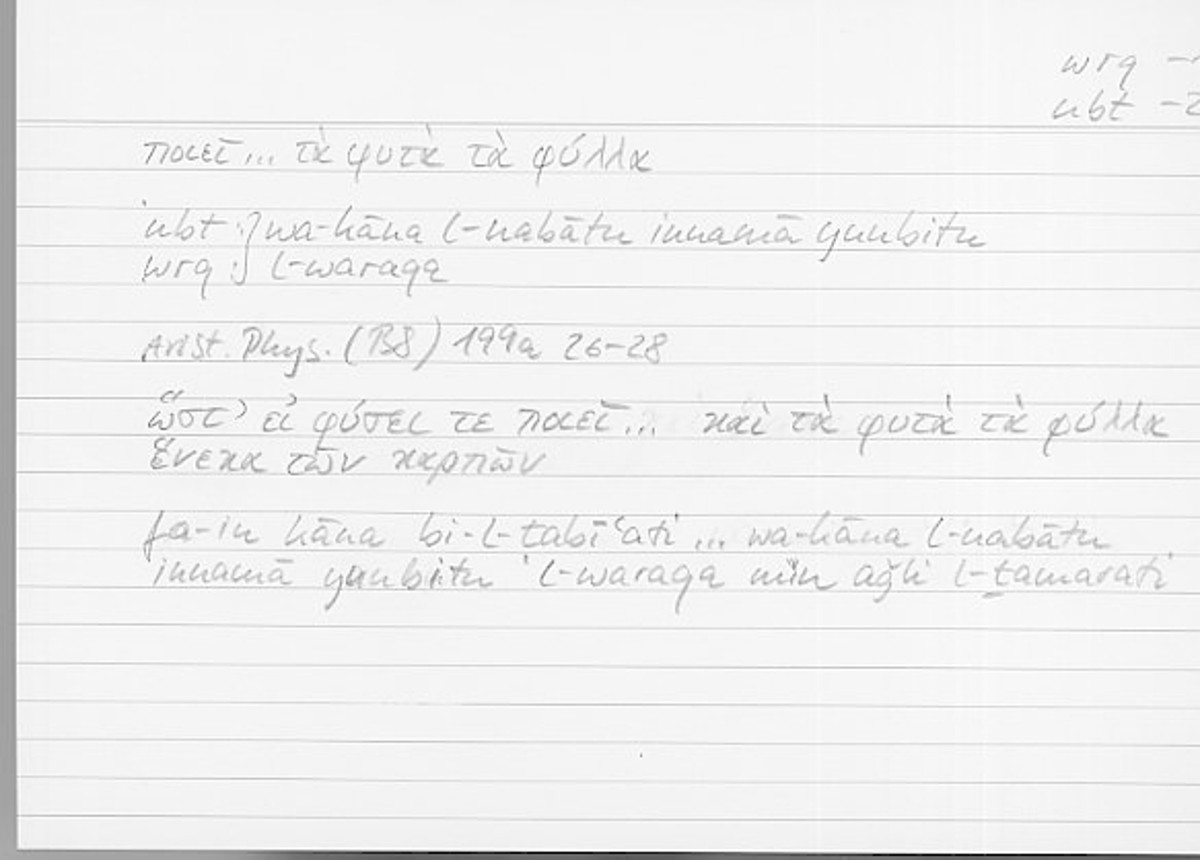 wrq -1
nbt -2
ποιεῖ... τὰ φυτὰ τὰ φύλλα
nbt :} wa-kāna l-nabātu innamā yunbitu
wrq :} l-waraqa
Arist. Phys. (B8) 199a 26-28
ὥστ' εἰ φύσει τε ποιεῖ... καὶ τὰ φυτὰ τὰ φύλλα
ἕνεκα τῶν καρπῶν
fa-in kāna bi-l-tabīʿati ... wa-kāna l-nabātu
innamā yunbitu l-waraqa min aǧli l-ṯamarati